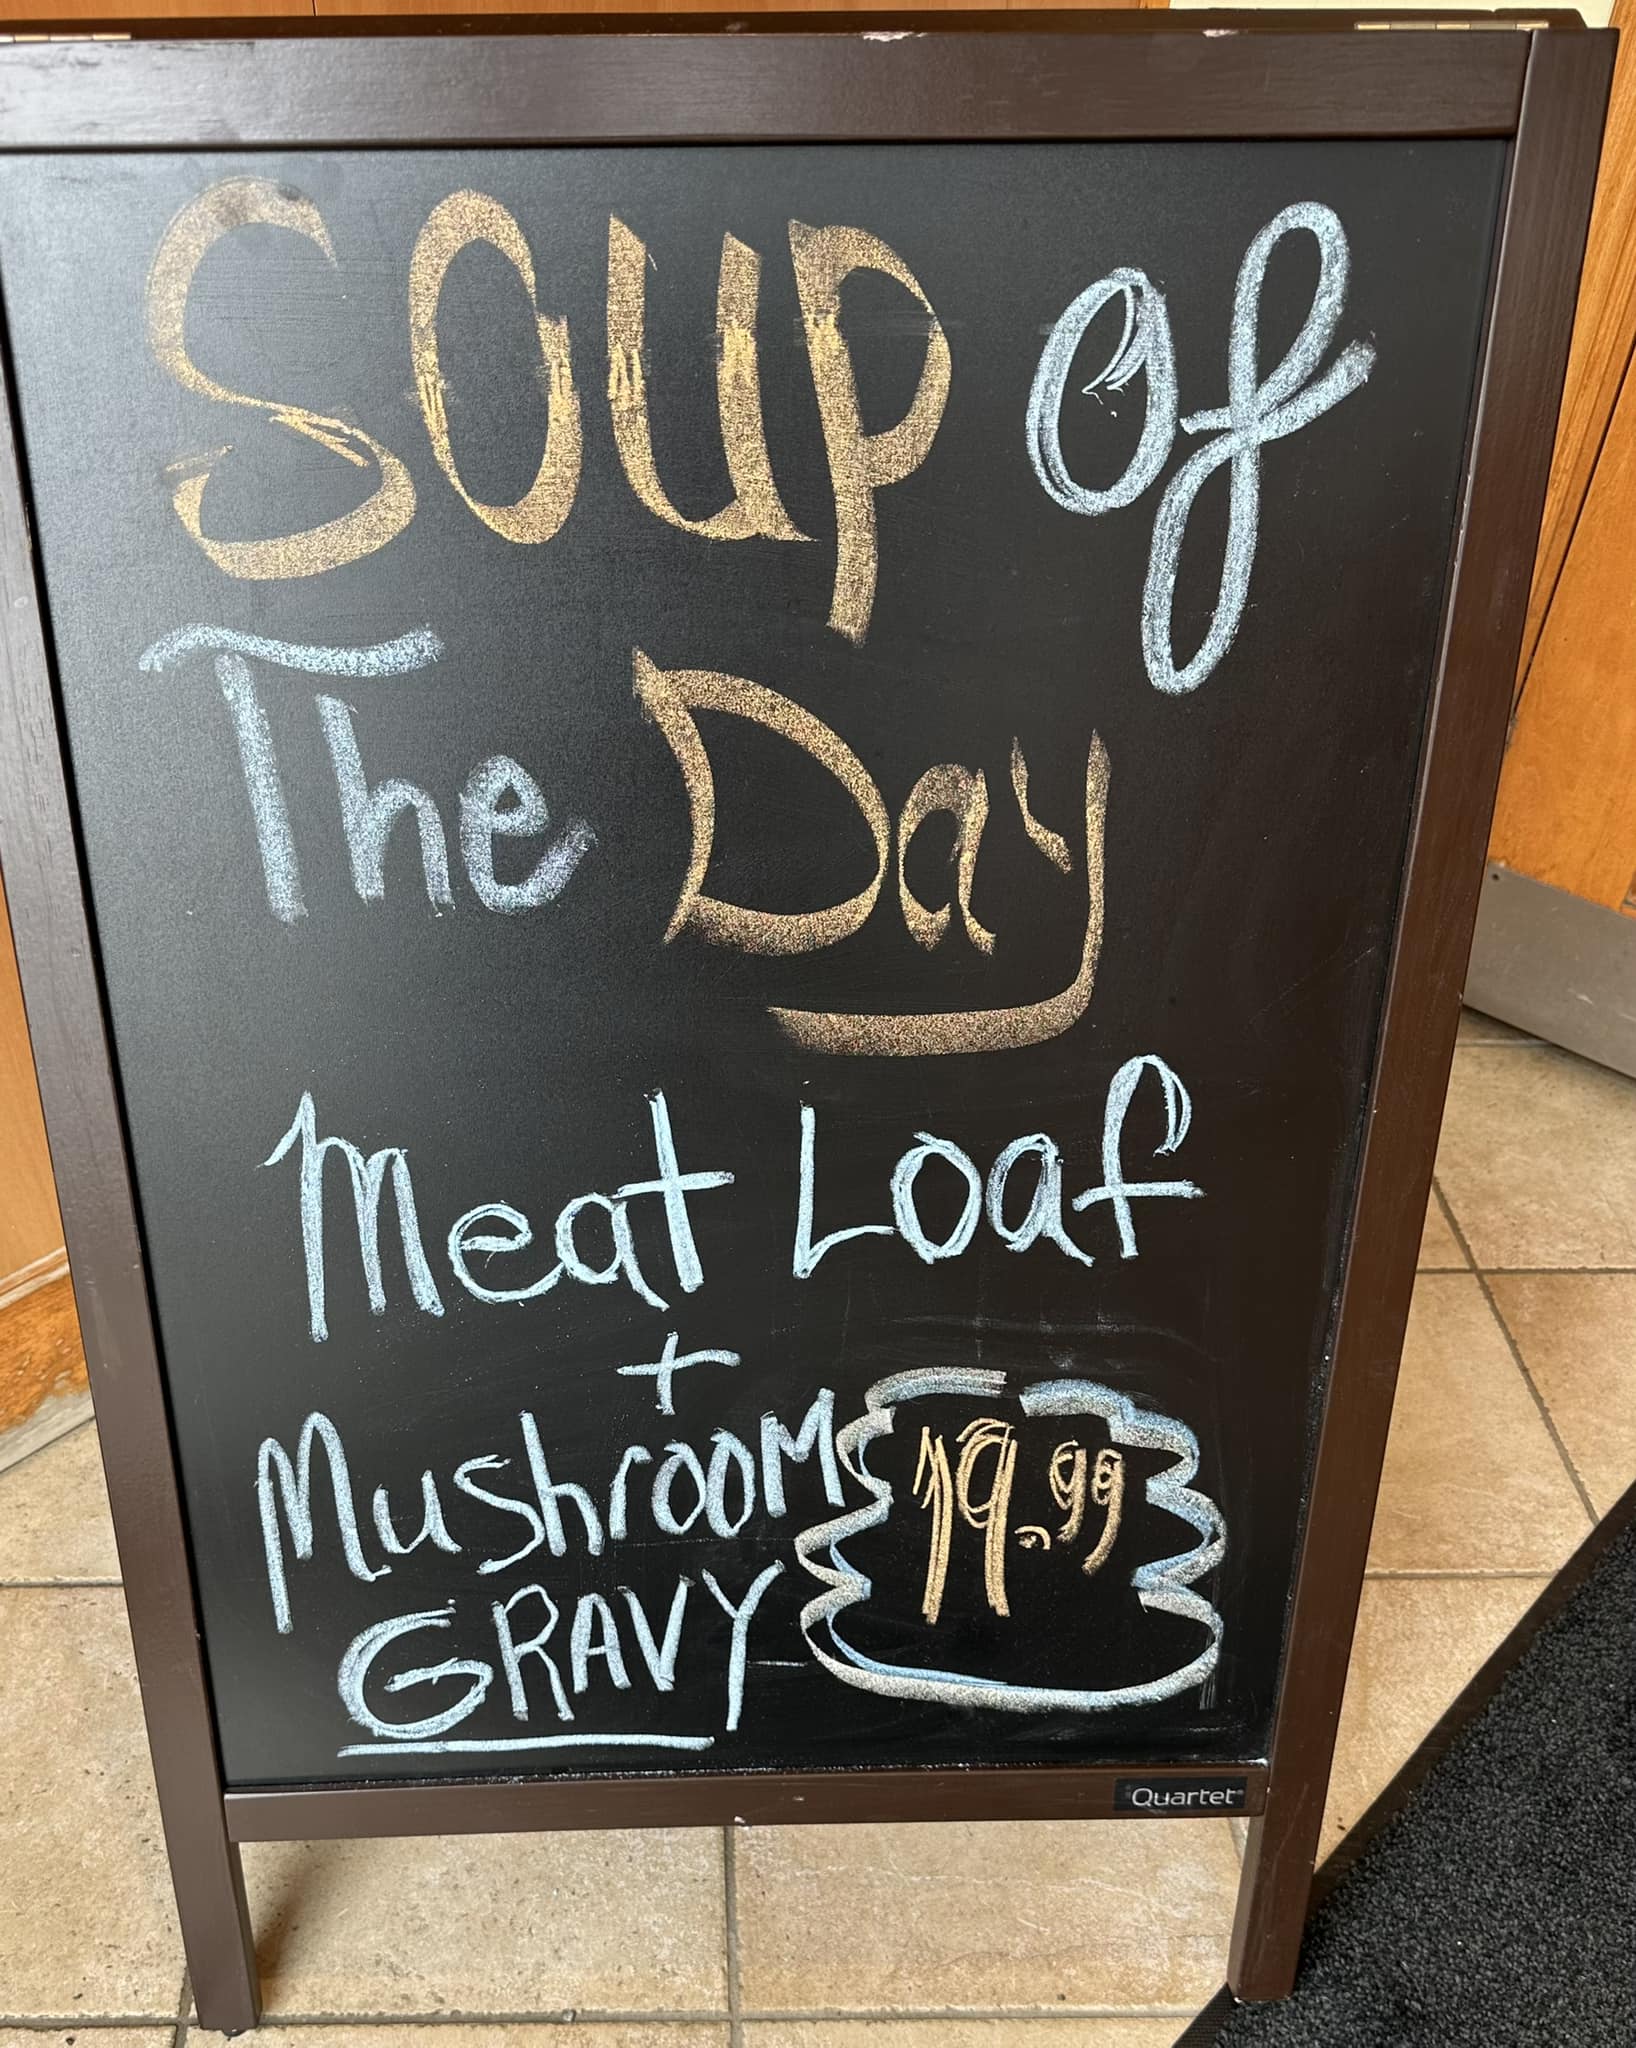 Soup of
The Day
Meat Loaf
+
Mushroom
GRAVY
19.99
Quartet